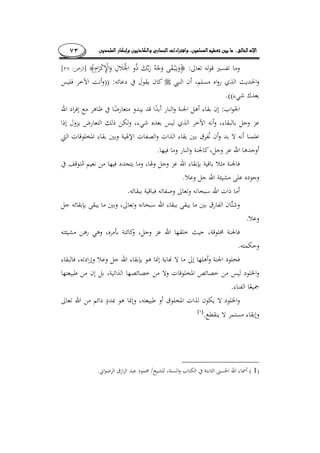 الإله الخالق.. ما بين تعظيم المسلمين، وافتراءات النصارى والعقلانيين وإنكار الملحدين ٧٣
وما تفسير قوله تعالى: ﴿وَيَبْقَىٰ وَجْهُ رَبِّكَ ذُو الْجَلَالِ وَالْإِكْرَامِ﴾ [الرحمن: ٢٧]
والحديث الذي رواه مسلم، أن النبي ﷺ كان يقول في دعائه: ((وأنت الآخر فليس
بعدك شيء)).
الجواب: إن بقاء أهل الجنة والنار أبدًا قد يبدو متعارضًا في ظاهر مع إفراد الله
عز وجل بالبقاء، وأنه الآخر الذي ليس بعده شيء، ولكن ذلك التعارض يزول إذا
علمنا أنه لا بد وأن نُفرق بين بقاء الذات والصفات الإلهية وبين بقاء المخلوقات التي
أوجدها الله عز وجل، كالجنة والنار وما فيها.
فالجنة مثلا باقية بإبقاء الله عز وجل لها، وما يتجدد فيها من نعيم مُتوقف في
وجوده على مشيئة الله جل وعلا.
أما ذات الله سبحانه وتعالى وصفاته فباقية ببقائه.
وشتَّان الفارق بين ما يبقى ببقاء الله سبحانه وتعالى، وبين ما يبقى بإبقائه جل
وعلا.
فالجنة مخلوقة، حيث خلقها الله عز وجل، وكائنة بأمره، وهي رهن مشيئته
وحكمته.
فخلود الجنة وأهلها إلى ما لا نهاية إنما هو بإبقاء الله جل وعلا وإرادته، فالبقاء
والخلود ليس من خصائص المخلوقات ولا من خصائصها الذاتية، بل إن من طبيعتها
جميعًا الفناء.
والخلود لا يكون لذات المخلوق أو طبيعته، وإنما هو بمددٍ دائم من الله تعالى
وإبقاء مستمر لا ينقطع. [1]
(1) أسماء الله الحسنى الثابتة في الكتاب والسنة، للشيخ/ محمود عبد الرازق الرضواني.